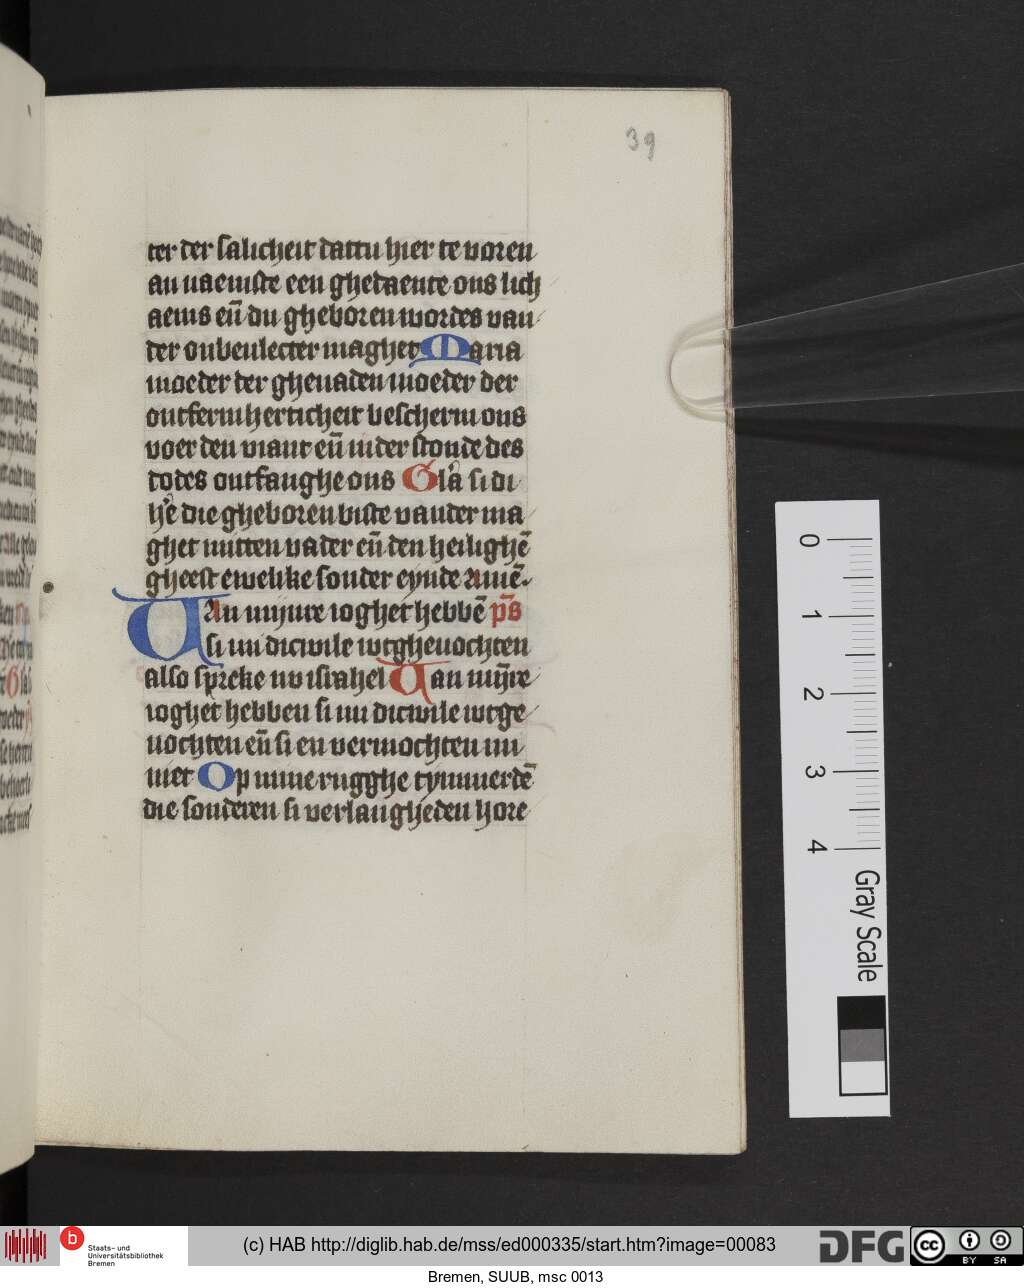 39
ter der salicheit dattu hier te voren
an naemste een ghedaente ons lich
aems eñ du gheboren wordes van
der onbeulecter maghet Maria
moeder der ghenaden moeder der
ontfermherticheit bescherm ons
voer den viant eñ inder stonde des
dodes ontfanghe ons Gla si di
he die gheboren biste vander ma
ghet mitten vader eñ den heilighē
gheest ewelike sonder eynde Amē
Van mijnre ioghet hebbē ps
si mi dicwile wtgheuochten
also spreke nv israhel Van mijre
ioghet hebben si mi dicwile wtge
uochten eñ si en vermochten mi
niet Op mine rugghe tymmerdē
die sonderen si verlangheden hore
0
1
2
3
4
Gray Scale
b Staats- und
Universitätsbibliothek
Bremen
(c) HAB http://diglib.hab.de/mss/ed000335/start.htm?image=00083
DFG
cc BY SA
Bremen, SUUB, msc 0013